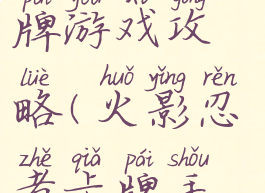 pái yóu xì gōng
牌游戏攻
lüè huǒ yǐng rěn
略(火影忍
zhě qiǎ pái shǒu
者卡牌手